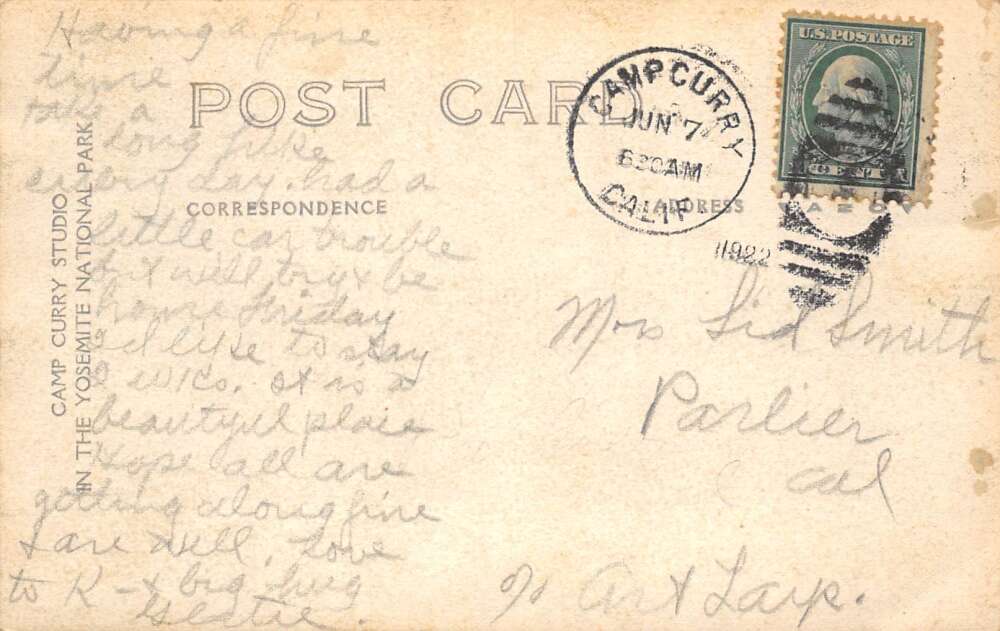 Having a fine
time
take a
long hike
every day. had a
little car trouble
but will try & be
home Friday
I'd like to stay
2 wks. It is a
beautiful place
Hope all are
getting along fine
& are well. Love
to K - & big hug
POST CARD
CORRESPONDENCE
ADDRESS
CAMP CURRY STUDIO
IN THE YOSEMITE NATIONAL PARK
CAMP CURRY
JUN 7
630AM
CALIF
1922
U.S. POSTAGE
1 CENT 1
Mrs Sid Smith
Parlier
Cal
c/o Art